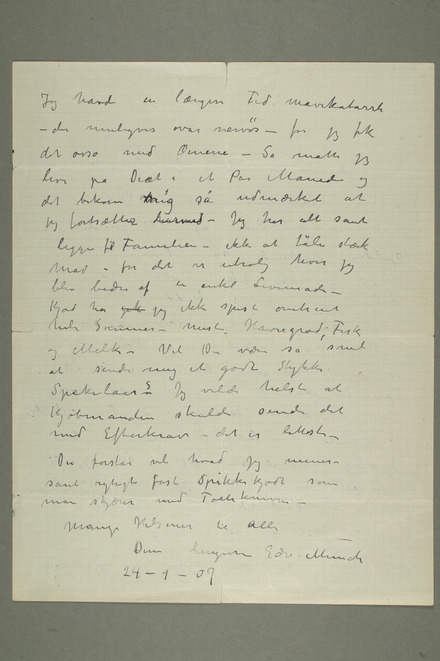 Jeg havde en længere Tid mavekatarrh
– der muligvis var nervøs – for jeg fik
det også med Ørnene – Så måtte jeg
leve på Diæt i et Par Måneder og
det bekom mig så udmærket at
jeg fortsætter hermed – Jeg har alt sånt
ligger til Familien – ikke at tåle stærk
Mad – for det er utrolig hvor jeg
blir bedre af en enkel Levemåde –
Kjød har jeg ikke spist omtrent
hele Sommeren – mest Havregrød, Fisk
og Melk – Vil Du være så snil
at sende mig et godt Stykke
Spekelaar? Jeg vilde helst at
Kjøbmanden skulde sende det
med Efterkrav – det er lettest –
Du forstår vel hvad jeg mener
sånt rigtigt fast Spikkekjødt som
man skjærer med Tollekniven –
Mange Hilsener til Alle
Din hengivne Edv. Munch
24 – 9 – 09